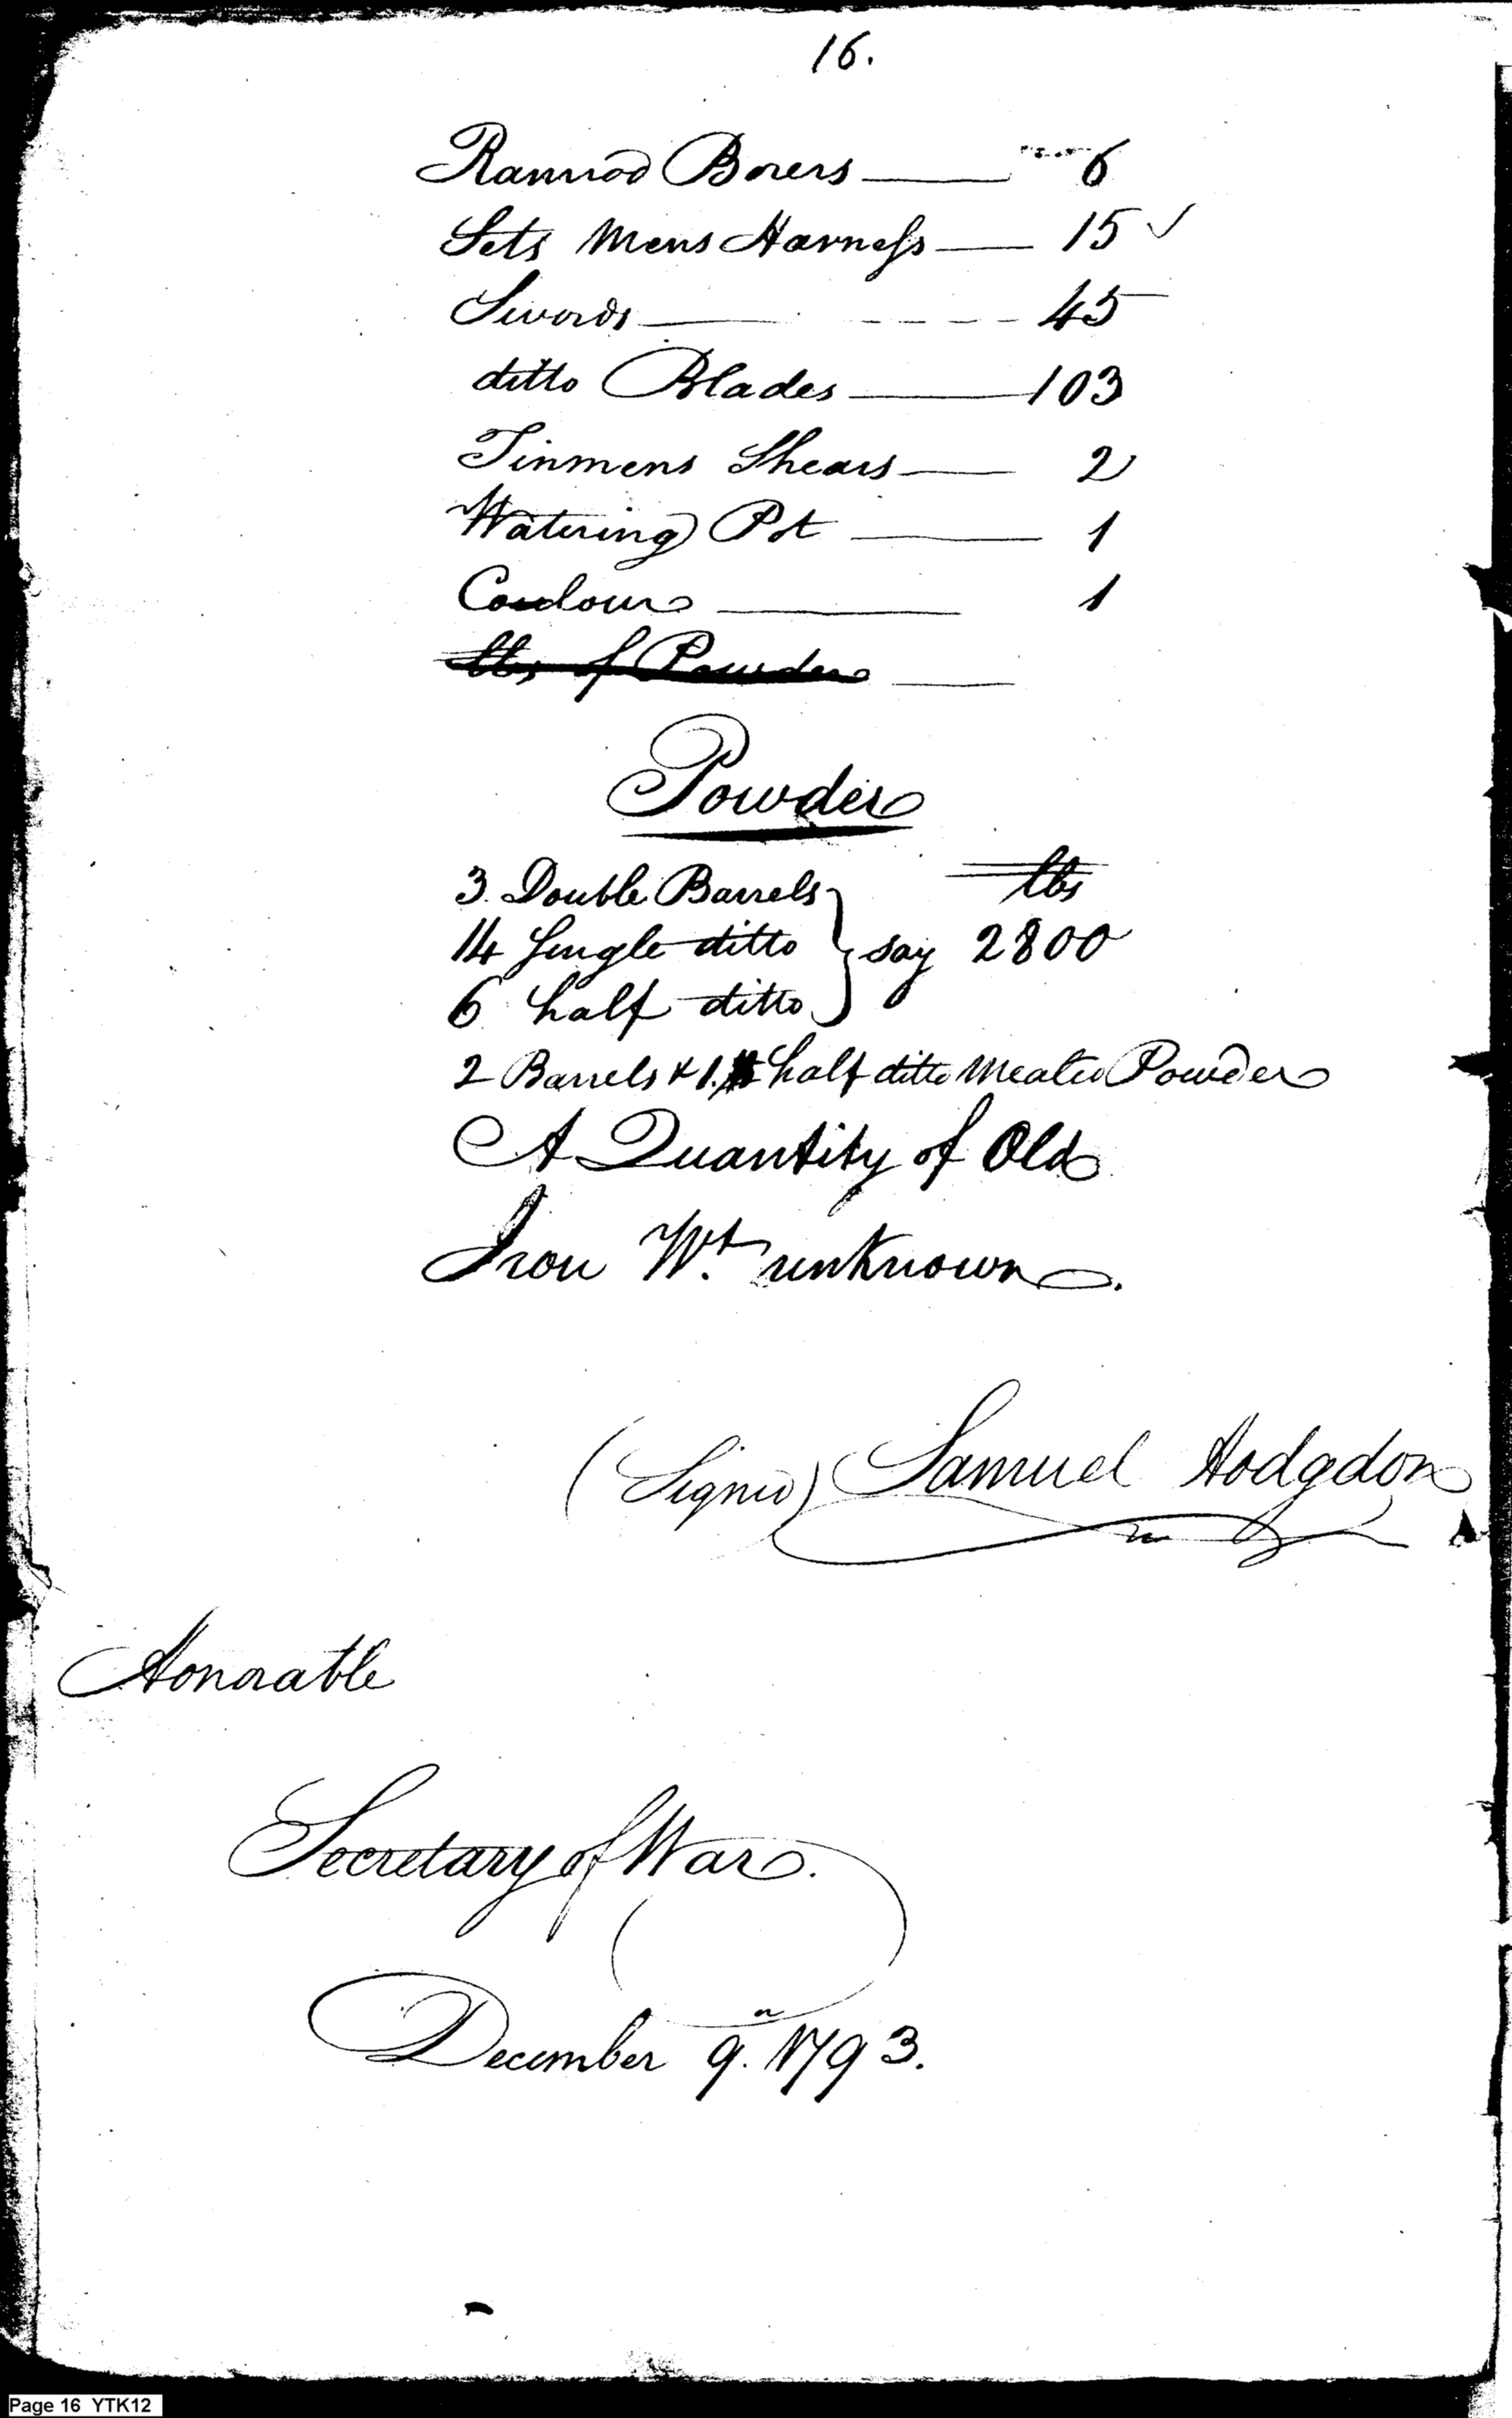 16.
Ramrod Borers 6
Sets Mens Harness 15 ✓
Swords 45
ditto Blades 103
Tinmens Shears 2
Watering Pot 1
1
lbs of Powder
Powder
3. Double Barrels lbs
14 Single ditto } say 2800
6 half ditto
2 Barrels & 1. half ditto Mealed Powder
A Quantity of Old
Iron Wt. unknown.
(Signed) Samuel Hodgdon
Honorable
Secretary of War.
December 9. 1793.
Page 16 YTK12